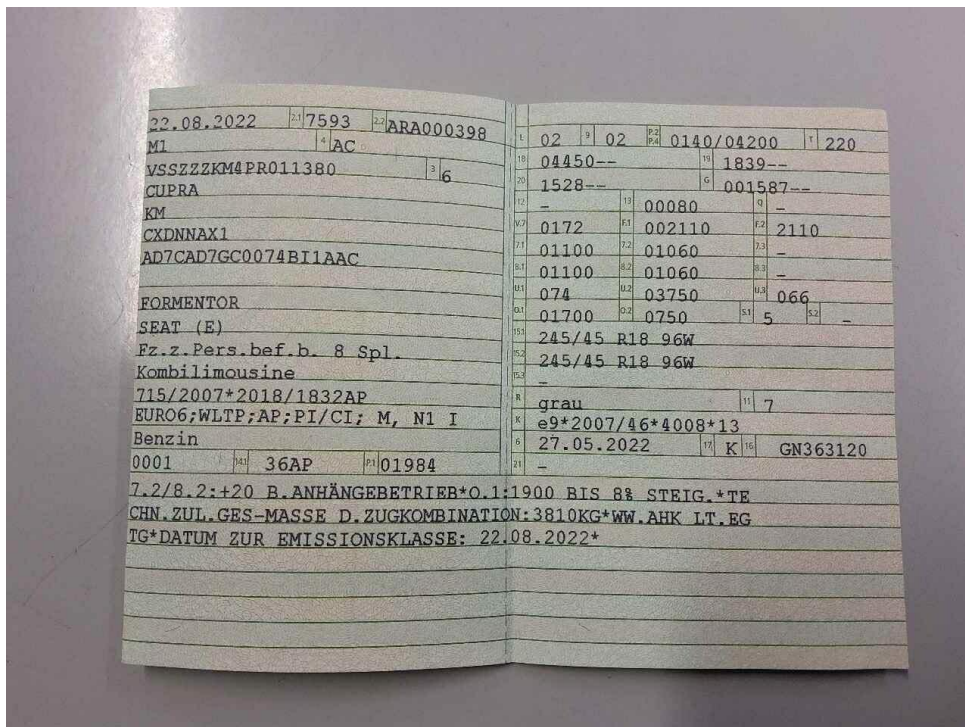 22.08.2022 2.1 7593 2.2 ARA000398
M1 4 AC
VSSZZZKM4PR011380 3 6
CUPRA
KM
CXDNNAX1
AD7CAD7GC0074BI1AAC
FORMENTOR
SEAT (E)
Fz.z.Pers.bef.b. 8 Spl.
Kombilimousine
715/2007*2018/1832AP
EURO6;WLTP;AP;PI/CI; M, N1 I
Benzin
0001 14.1 36AP P.1 01984
L 02 9 02 P.2 P.4 0140/04200 T 220
18 04450-- 19 1839--
20 1528-- G 001587--
12 - 13 00080 Q -
V.7 0172 F.1 002110 F.2 2110
7.1 01100 7.2 01060 7.3 -
8.1 01100 8.2 01060 8.3 -
U.1 074 U.2 03750 U.3 066
O.1 01700 O.2 0750 S.1 5 S.2 -
15.1 245/45 R18 96W
15.2 245/45 R18 96W
15.3 -
R grau 11 7
K e9*2007/46*4008*13
6 27.05.2022 17 K 16 GN363120
21 -
7.2/8.2:+20 B.ANHÄNGEBETRIEB*O.1:1900 BIS 8% STEIG.*TE
CHN.ZUL.GES-MASSE D.ZUGKOMBINATION:3810KG*WW.AHK LT.EG
TG*DATUM ZUR EMISSIONSKLASSE: 22.08.2022*